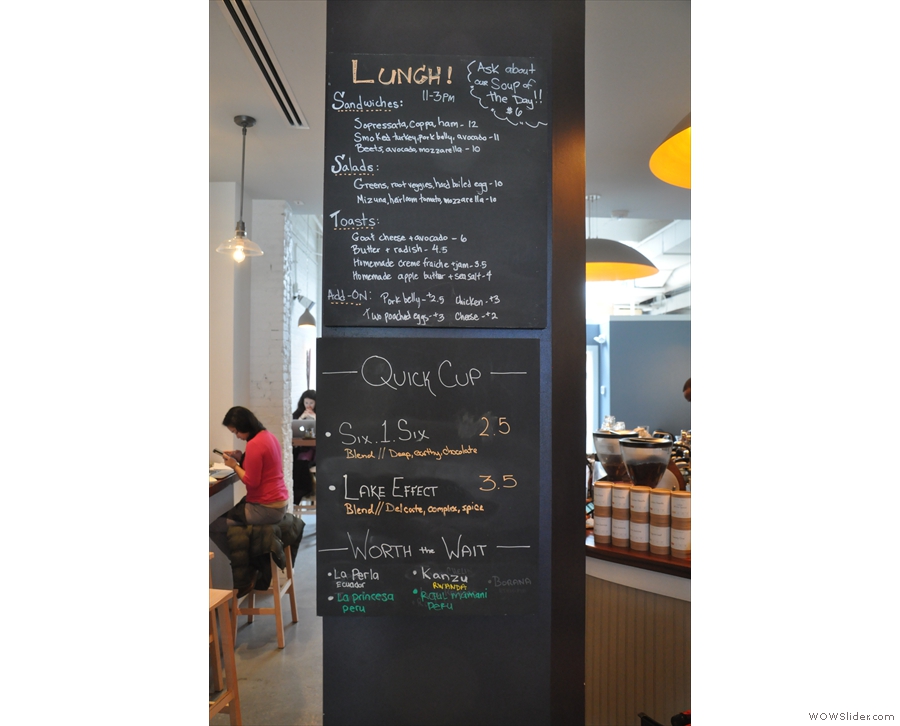 LUNCH!
11-3PM
Ask about
our Soup of
the Day!!
$6
Sandwiches:
Sopressata, Coppa, ham - 12
Smoked turkey, pork belly, avocado - 11
Beets, avocado, mozzarella - 10
Salads:
Greens, root veggies, hard boiled egg - 10
Mizuna, heirloom tomato, mozzarella - 10
Toasts:
Goat cheese + avocado - 6
Butter + radish - 4.5
Homemade creme fraiche + jam - 3.5
Homemade apple butter + sea salt - 4
Add-ON: Pork belly - +2.5 Chicken - +3
Two poached eggs - +3 Cheese - +2
QUICK CUP
• Six.1.Six 2.5
Blend // Deep, earthy, chocolate
• LAKE EFFECT 3.5
Blend // Delicate, complex, spice
WORTH the WAIT
• La Perla
Ecuador
• La princesa
peru
• Kanzu
RWANDA
• Raul mamani
Peru
• BORANA
WOWSlider.com